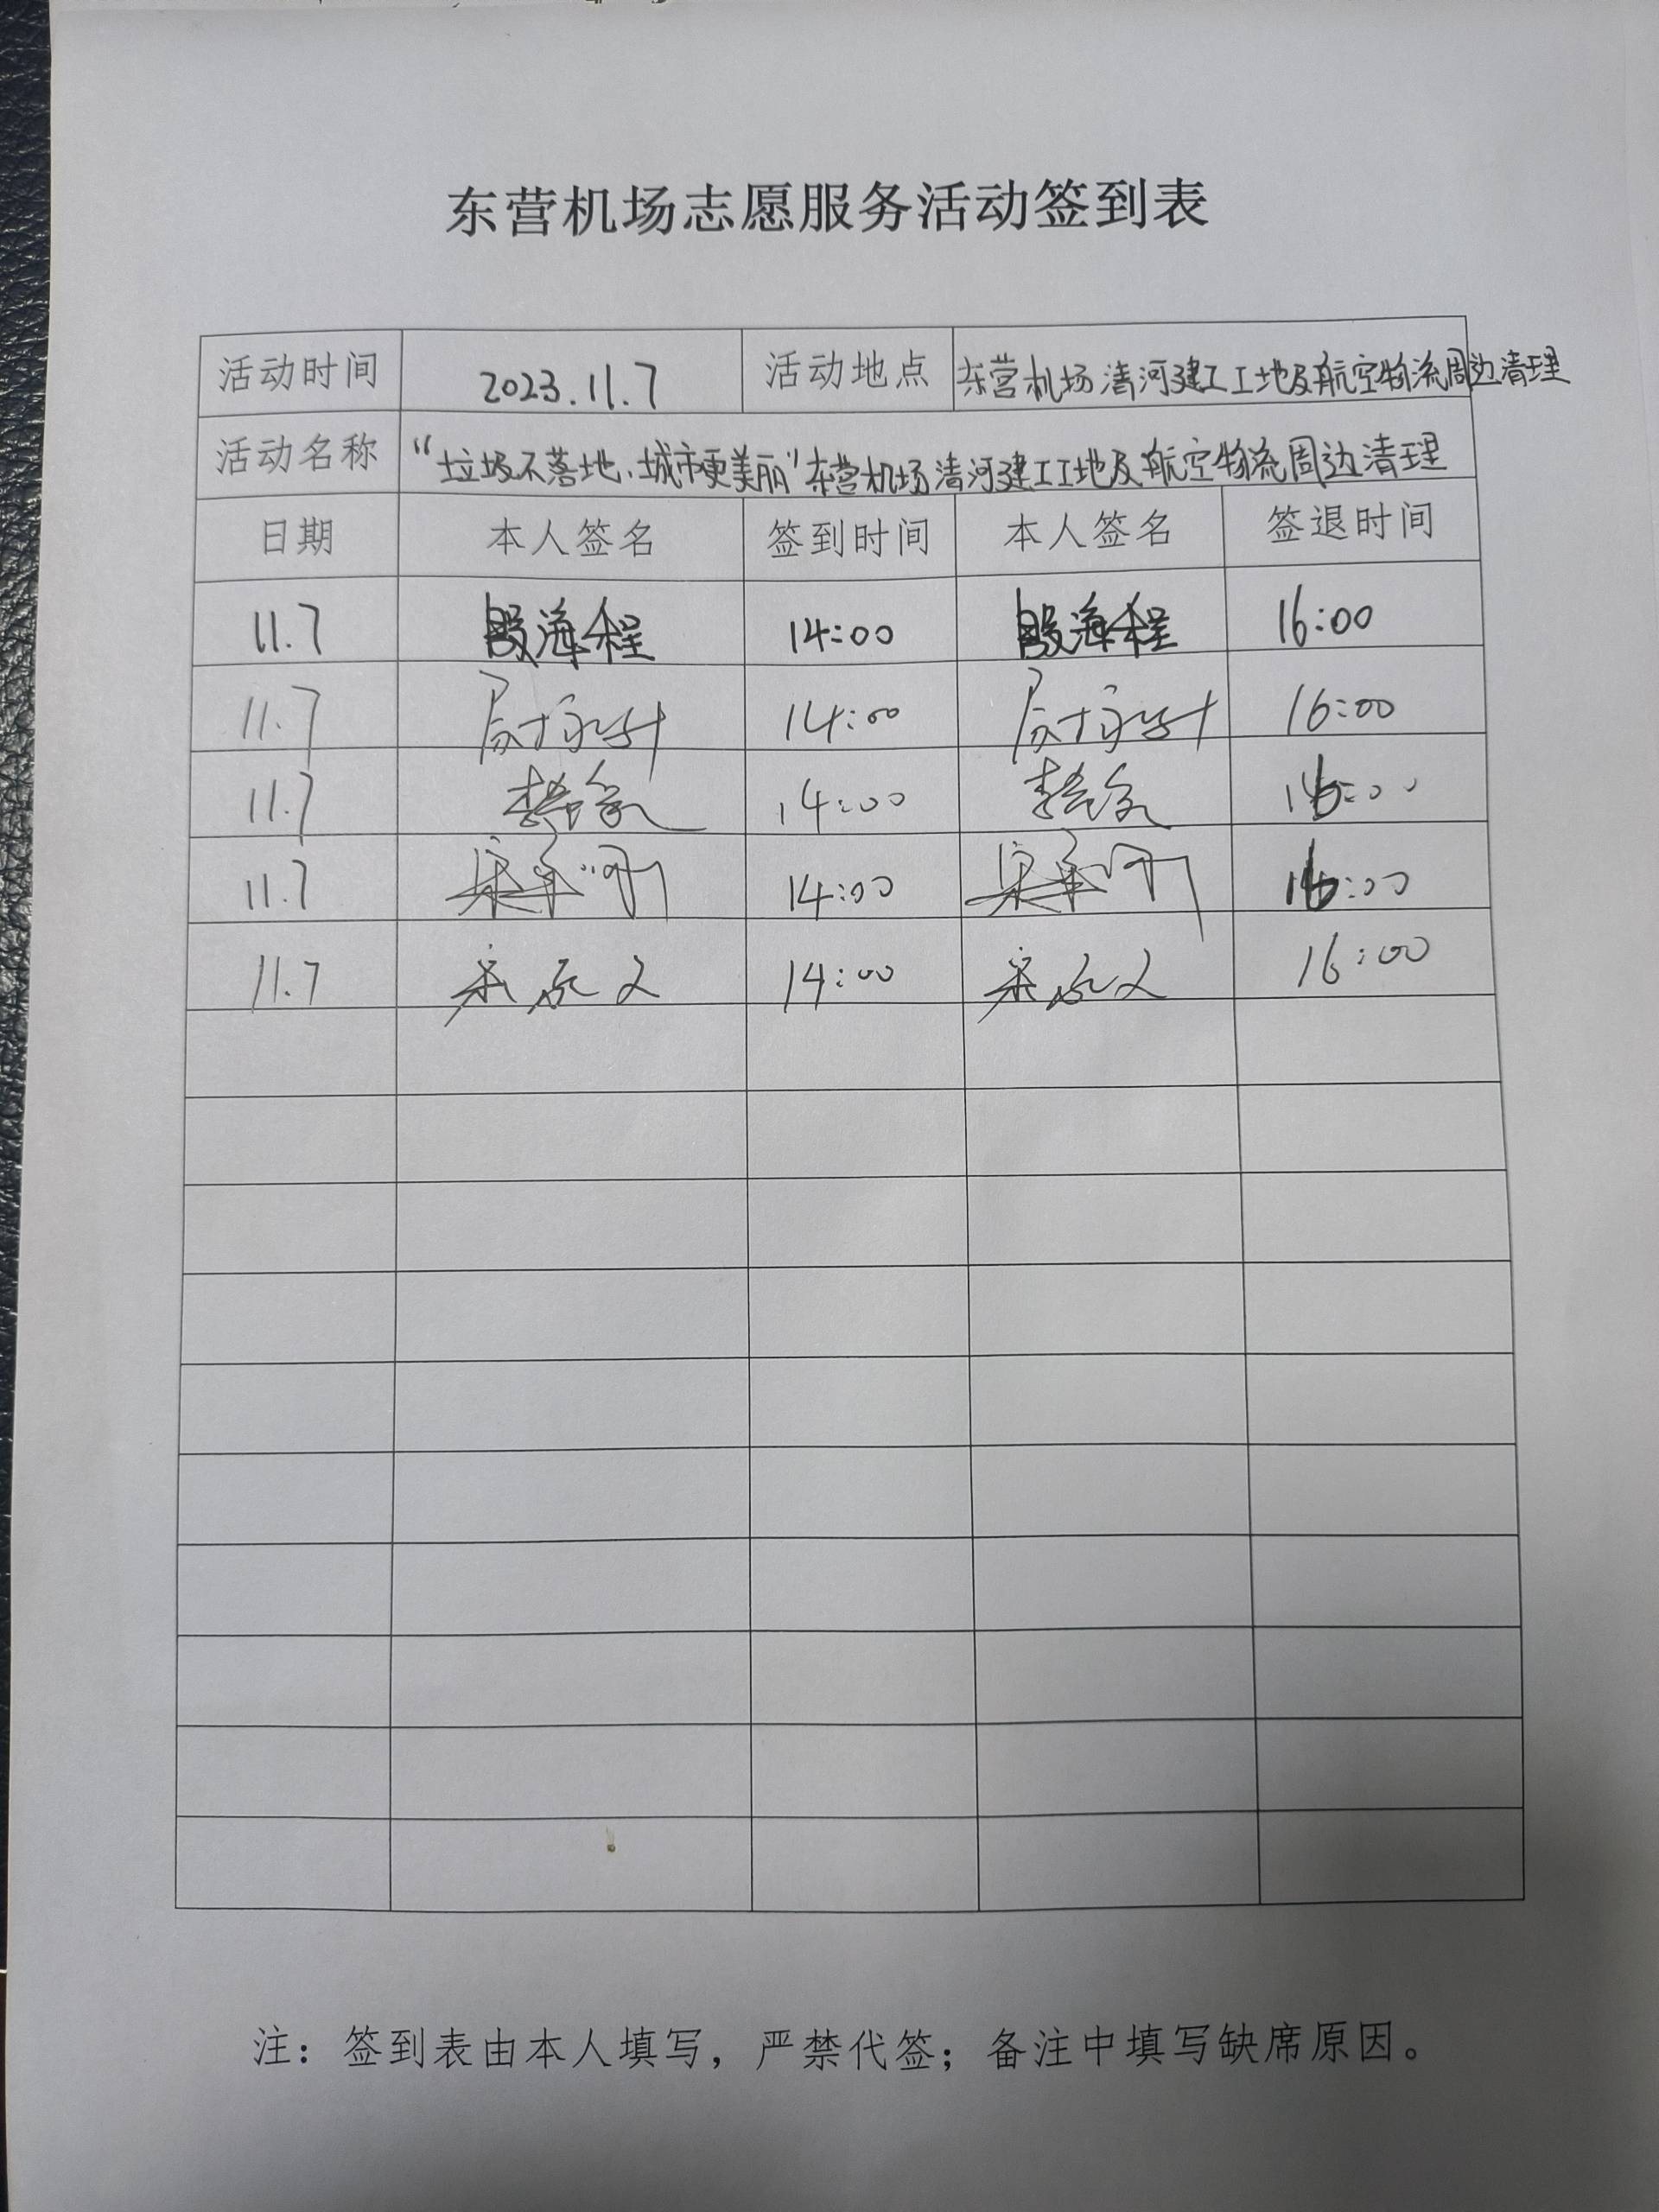 东营机场志愿服务活动签到表
活动时间 2023.11.7 活动地点 东营机场清河建工工地及航空物流周边清理
活动名称 “垃圾不落地、城市更美丽”东营机场清河建工工地及航空物流周边清理
日期 本人签名 签到时间 本人签名 签退时间
11.7 殷海程 14:00 殷海程 16:00
11.7 14:00 16:00
11.7 14:00 16:00
11.7 14:00 16:00
11.7 14:00 16:00
注：签到表由本人填写，严禁代签；备注中填写缺席原因。